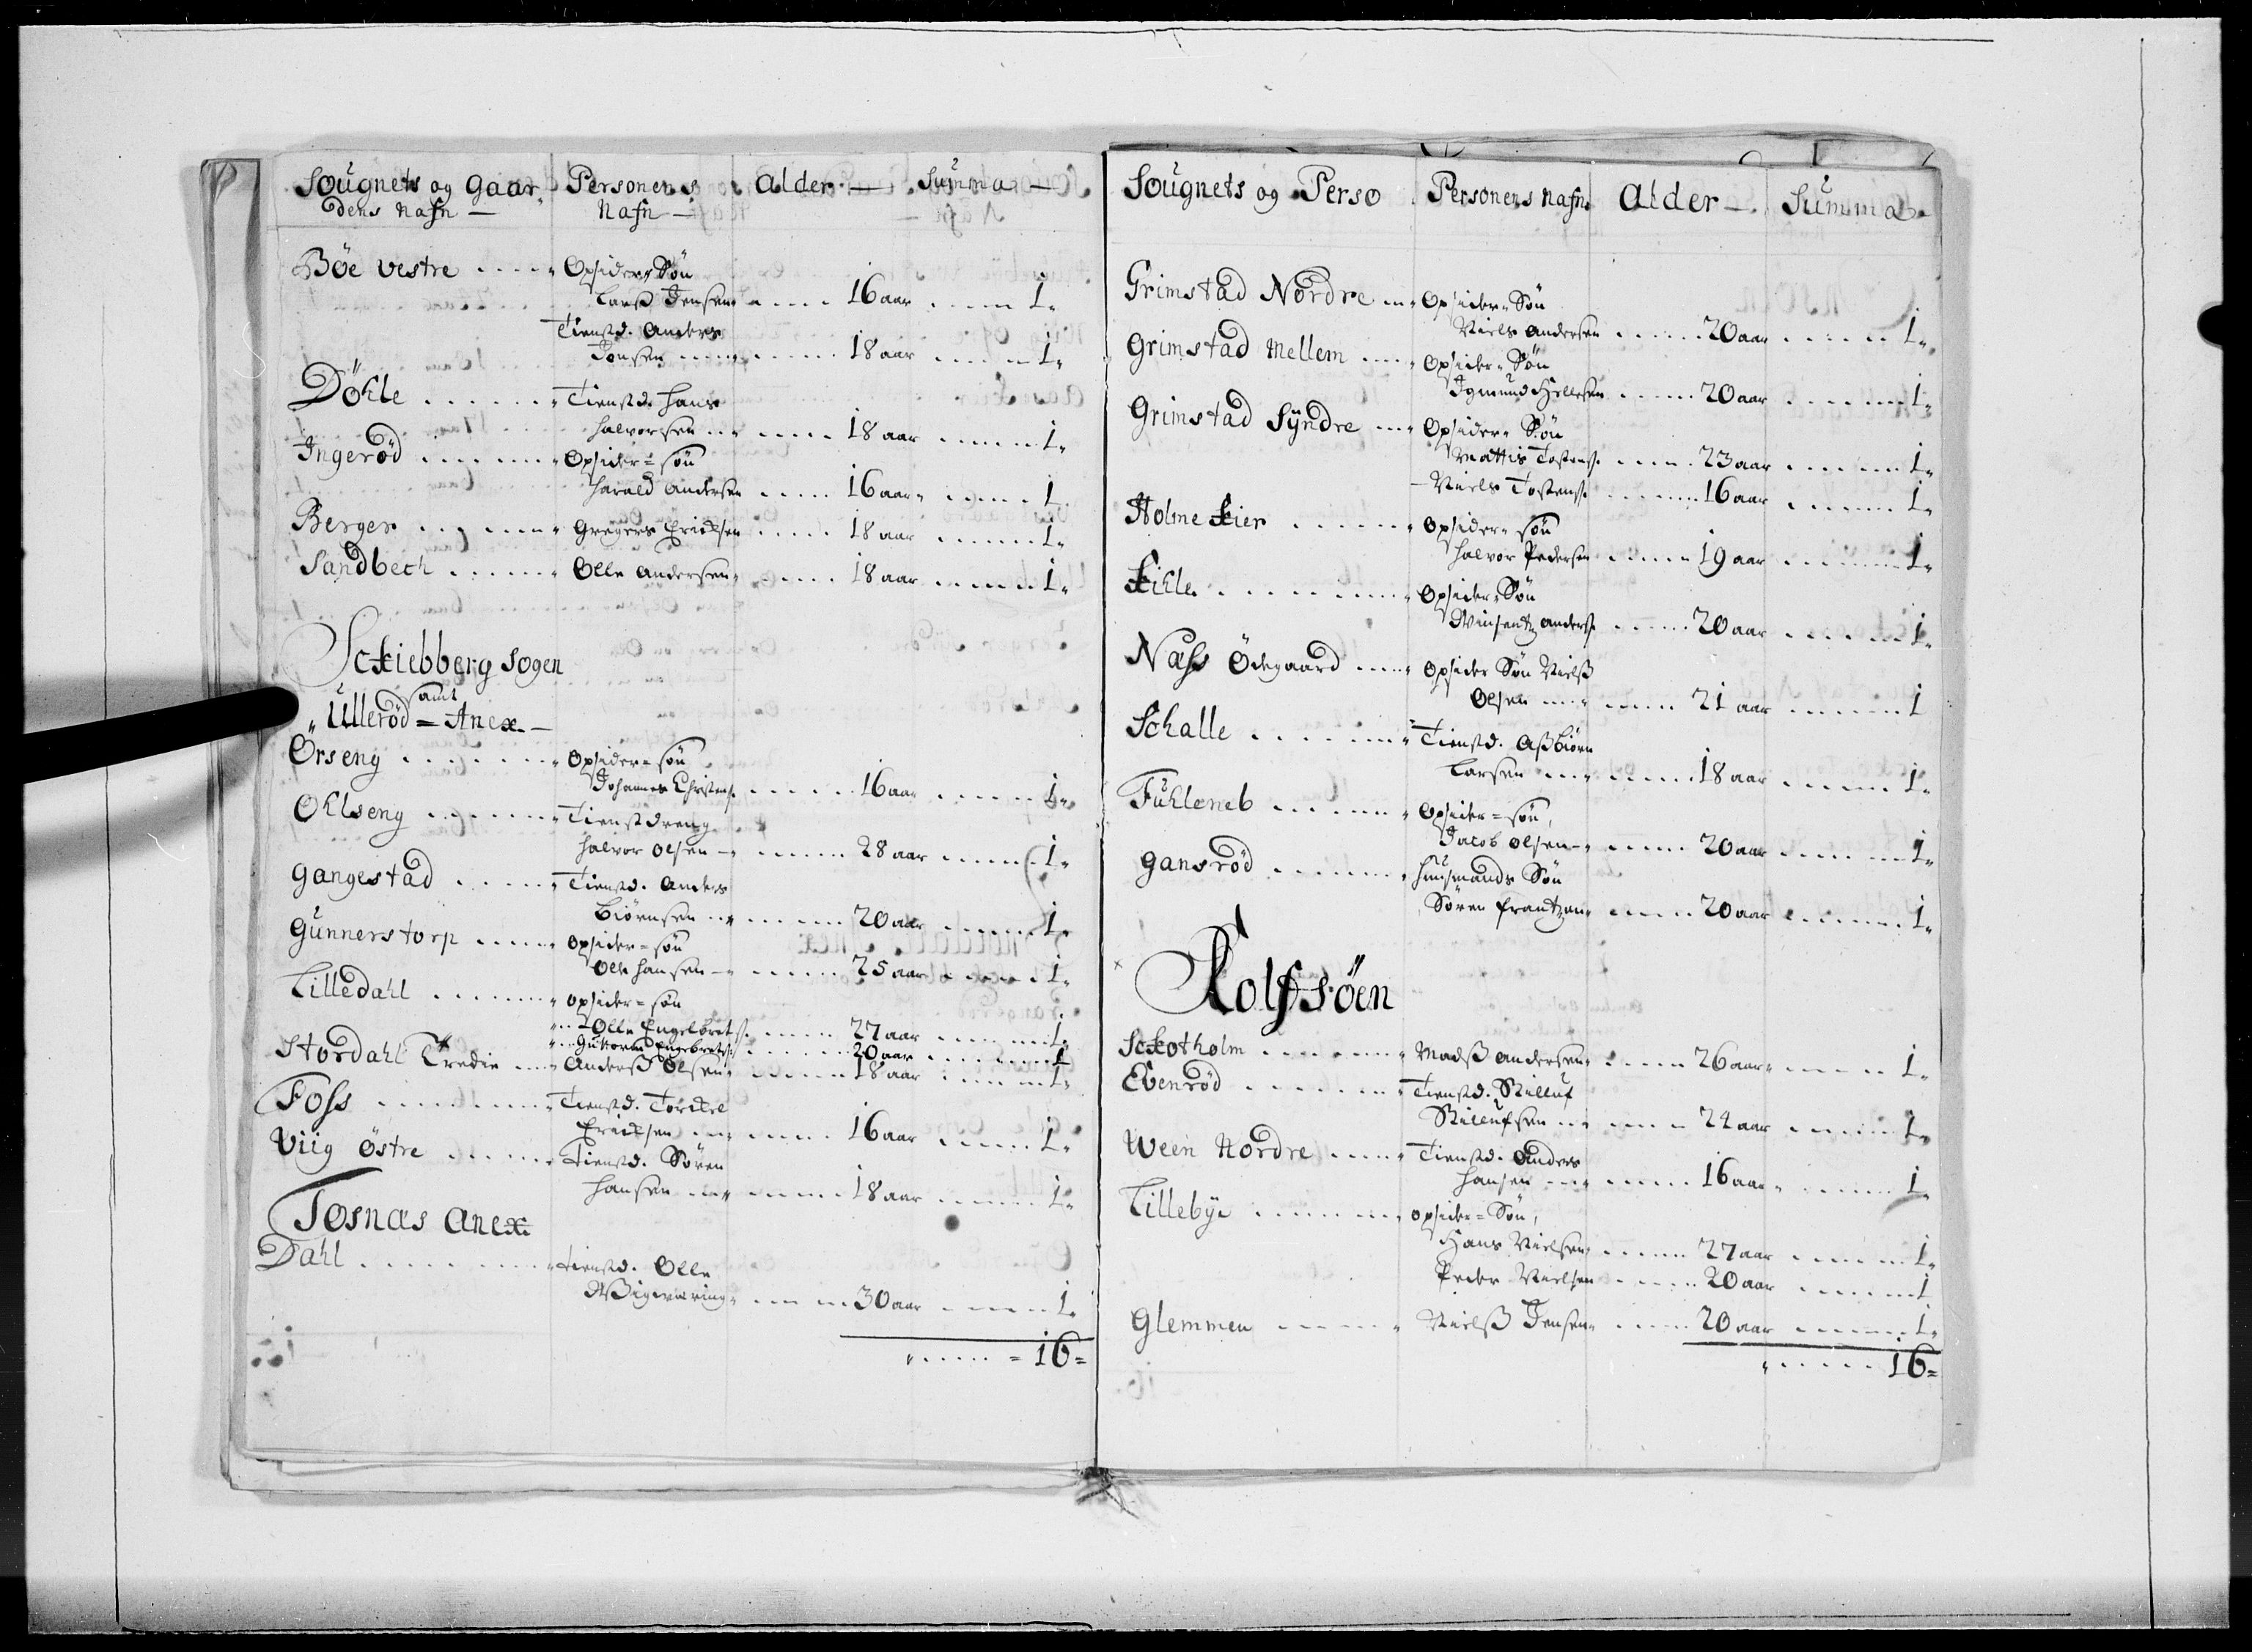 Sougnets og Gaar Personens Alder — Summa —
dens Nafn — Nafn —
Böe Vestre ..... Opsider Søn
Larß Jensen .... 16 aar .... 1
Tienstd. Anders
Jonsen ..... 18 aar .... 1
Döhle ...... Tienstd. Hans
Halvorsen .... 18 aar .... 1
Ingeröd ....... Opsider = søn
Harald Andersen .... 16 aar .... 1
Berger ....... Gregers Ericksen .... 18 aar .... 1
Sandbech ...... Olle Andersen .... 18 aar .... 1
Sckiebberg Sogen
samt
Ulleröd = Anex —
Örseng ...... Opsider = søn
Johannes Christens. .... 16 aar .... 1
Ohlseng ...... Tienstdreng
Halvor Olsen .... 28 aar .... 1
Gangestad ..... Tienstd. Anders
Biörnsen .... 20 aar .... 1
Gunnerstorp ..... Opsider = søn
Ole Hansen — .... 25 aar .... 1
Lilledahl ....... opsider = søn
Olle Engelbret s. .... 27 aar .... 1
Guttorm Engebretts. .... 20 aar .... 1
Stordahl Tredie .... Anderß Olsen .... 18 aar .... 1
Foss ........ Tienstd. Torckel
Ericksen .... 16 aar .... 1
Viig östre ...... Tienstd. Sören
Hansen .... 18 aar .... 1
Tosnas Anex
Dahl ......... Tienstd. Olle
.... 30 aar .... 1
..... = 16 =
Sougnets og Perso Personens Nafn Alder — Summa
Grimstad Nordre ... Opsider Søn
Niels Andersen .... 20 aar .... 1
Grimstad Mellem .... Opsider Søn
Hellesen .... 20 aar .... 1
Grimstad Syndre .... Opsider Søn
Mattis Tostens. .... 23 aar .... 1
Niels Tostens. .... 16 aar .... 1
Holme kier ...... Opsider søn
Halvor Pedersen .... 19 aar .... 1
kihle ........ Opsider Søn
Anders. .... 20 aar .... 1
Næss Ödegaard .... Opsider Søn Nielß
Olsen .... 21 aar .... 1
Schalle ....... Tienstd. Aßbiörn
Larsen .... 18 aar .... 1
Fuhleneb ...... Opsider = søn,
Jacob Olsen .... 20 aar .... 1
Gansröd ....... Huusmands Søn
Sören Frantzen .... 20 aar .... 1
Rolfsöen
Sckotholm ....... Madß Andersen .... 26 aar .... 1
Evenröd ....... Tienstd.
.... 24 aar .... 1
Ween Nordre .... Tienstd. Anders
Hansen .... 16 aar .... 1
Lillebye ....... opsider = Søn,
Hans Nielsen .... 27 aar .... 1
Peder Nielsen .... 20 aar .... 1
Glemmen ..... Nielß Jensen .... 20 aar .... 1
..... 16 =